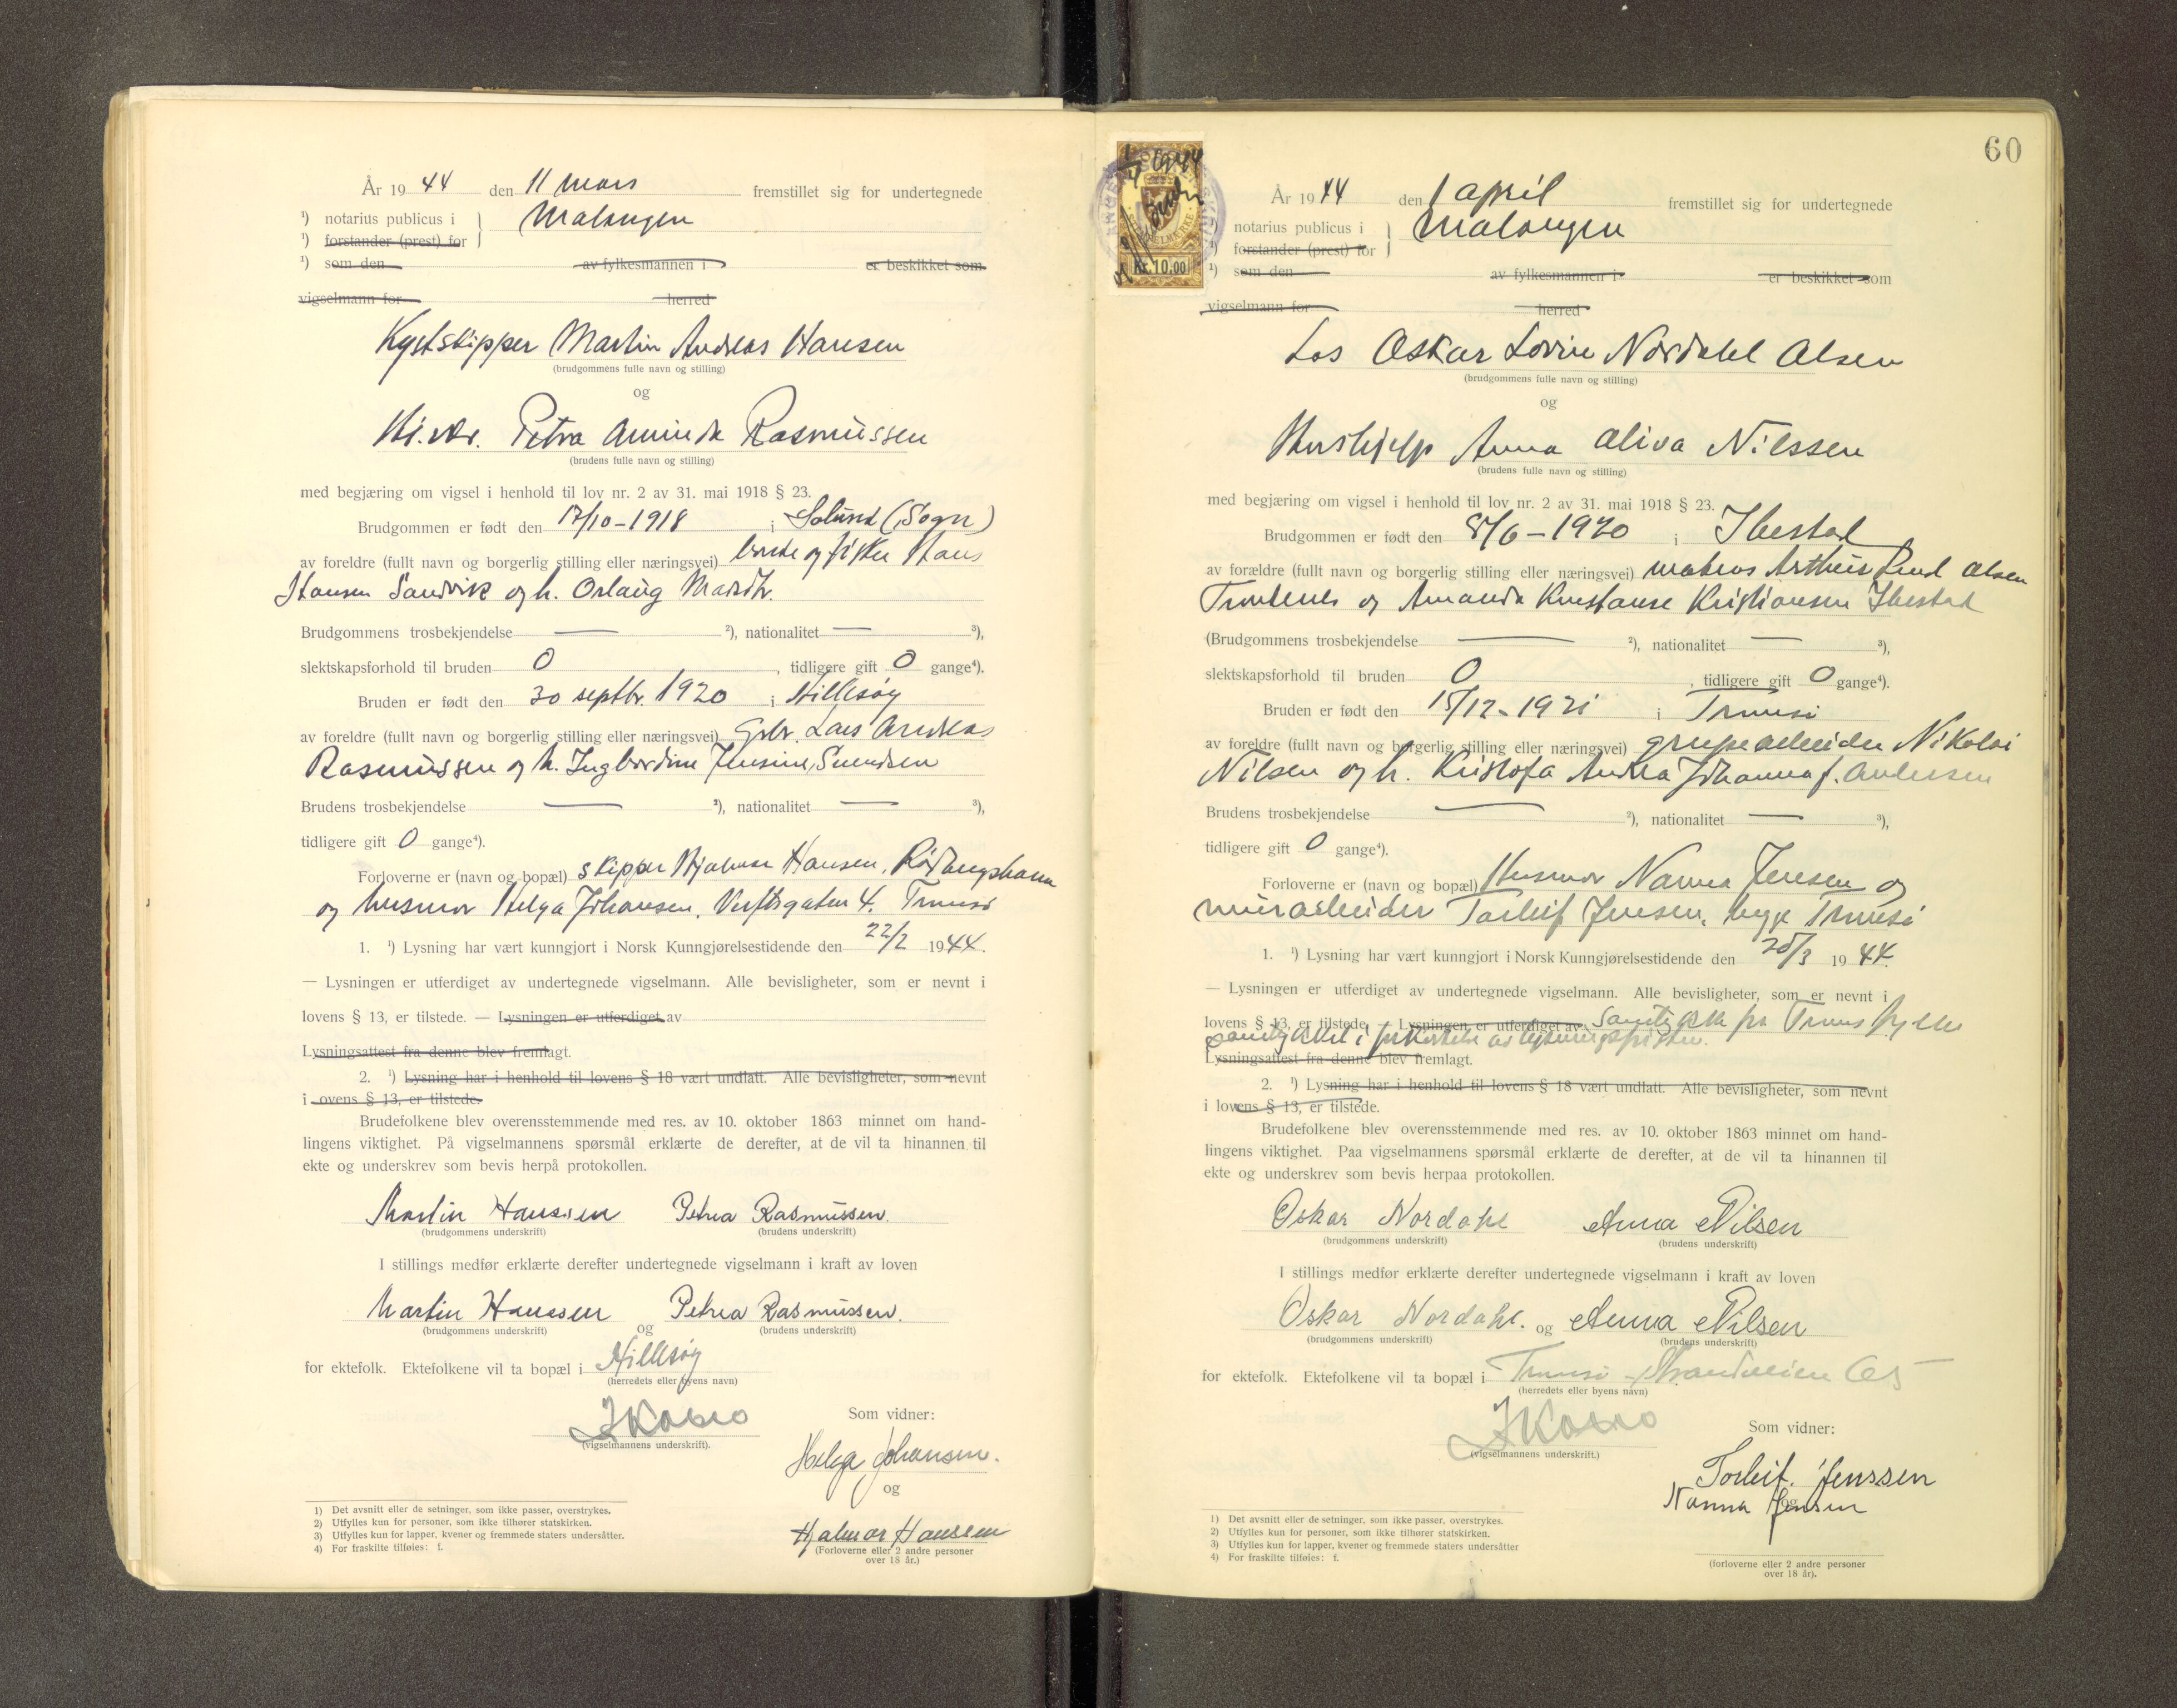 År 1944 den 11 mars fremstillet sig for undertegnede
¹) notarius publicus i } Malangen
¹) forstander (prest) for
¹) som den av fylkesmannen i er beskikket som
vigselmann for herred
Kystskipper Martin Andreas Hansen
(brudgommens fulle navn og stilling)
og
Petra Aminda Rasmussen
(brudens fulle navn og stilling)
med begjæring om vigsel i henhold til lov nr. 2 av 31. mai 1918 § 23.
Brudgommen er født den 17/10-1918 i Solund (Sogn)
av foreldre (fullt navn og borgerlig stilling eller næringsvei) og fisker Hans
Hansen Sandvik og h. Oslaug
Brudgommens trosbekjendelse — ²), nationalitet — ³),
slektskapsforhold til bruden 0, tidligere gift 0 gange⁴).
Bruden er født den 30 septbr. 1920 i Hillesøy
av foreldre (fullt navn og borgerlig stilling eller næringsvei) Gbr. Lars Andreas
Rasmussen og h. Ingbordine Jensine, Svendsen
Brudens trosbekjendelse — ²), nationalitet — ³),
tidligere gift 0 gange⁴).
Forloverne er (navn og bopæl) skipper Hjalmar Hansen, Rødbergshamn
og husmor Helga Johansen, Verftsgaten 4, Tromsø
1. ¹) Lysning har vært kunngjort i Norsk Kunngjørelsestidende den 22/2 1944.
— Lysningen er utferdiget av undertegnede vigselmann. Alle bevisligheter, som er nevnt i
lovens § 13, er tilstede. — Lysningen er utferdiget av
Lysningsattest fra denne blev fremlagt.
2. ¹) Lysning har i henhold til lovens § 18 vært undlatt. Alle bevisligheter, som nevnt
i lovens § 13, er tilstede.
Brudefolkene blev overensstemmende med res. av 10. oktober 1863 minnet om hand-
lingens viktighet. På vigselmannens spørsmål erklærte de derefter, at de vil ta hinannen til
ekte og underskrev som bevis herpå protokollen.
Martin Hanssen Petra Rasmussen.
(brudgommens underskrift) (brudens underskrift)
I stillings medfør erklærte derefter undertegnede vigselmann i kraft av loven
Martin Hanssen og Petra Rasmussen.
(brudgommens underskrift) (brudens underskrift)
for ektefolk. Ektefolkene vil ta bopæl i Hillesøy
(herredets eller byens navn)
(vigselmannens underskrift).
Som vidner:
Helga Johansen.
og
Hjalmar Hansen
(Forloverne eller 2 andre personer
over 18 år.)
1) Det avsnitt eller de setninger, som ikke passer, overstrykes.
2) Utfylles kun for personer, som ikke tilhører statskirken.
3) Utfylles kun for lapper, kvener og fremmede staters undersåtter.
4) For fraskilte tilføies: f.
60
Kr. 10,00
År 1944 den 1 april fremstillet sig for undertegnede
notarius publicus i } Malangen
¹) forstander (prest) for
¹) som den av fylkesmannen i er beskikket som
vigselmann for herred
Los Oskar Lovin Nordahl Olsen
(brudgommens fulle navn og stilling)
og
Hushjelp Anna Oliva Nilssen
(brudens fulle navn og stilling)
med begjæring om vigsel i henhold til lov nr. 2 av 31. mai 1918 § 23.
Brudgommen er født den 8/6-1920 i Ibestad
av forældre (fullt navn og borgerlig stilling eller næringsvei) matros Arthur Olsen
Trondenes og Amanda Konstanse Kristiansen Ibestad
(Brudgommens trosbekjendelse — ²), nationalitet — ³),
slektskapsforhold til bruden 0, tidligere gift 0 gange⁴).
Bruden er født den 15/12-1921 i Tromsø
av foreldre (fullt navn og borgerlig stilling eller næringsvei) grubearbeider Nikolai
Nilsen og h. Kristofa Andrea Johanna f. Andersen
Brudens trosbekjendelse — ²), nationalitet — ³),
tidligere gift 0 gange⁴).
Forloverne er (navn og bopæl) Husmor Nanna Jensen og
murarbeider Torleif Jensen, begge Tromsø
1. ¹) Lysning har vært kunngjort i Norsk Kunngjørelsestidende den 20/3 1944.
— Lysningen er utferdiget av undertegnede vigselmann. Alle bevisligheter, som er nevnt i
lovens § 13, er tilstede. — Lysningen er utferdiget av Samtykke fra Troms fylke
samtykket i forkortelse av lysningsfristen.
Lysningsattest fra denne blev fremlagt.
2. ¹) Lysning har i henhold til lovens § 18 vært undlatt. Alle bevisligheter, som nevnt
i lovens § 13, er tilstede.
Brudefolkene blev overensstemmende med res. av 10. oktober 1863 minnet om hand-
lingens viktighet. Paa vigselmannens spørsmål erklærte de derefter, at de vil ta hinannen til
ekte og underskrev som bevis herpaa protokollen.
Oskar Nordahl Anna Nilsen
(brudgommens underskrift) (brudens underskrift)
I stillings medfør erklærte derefter undertegnede vigselmann i kraft av loven
Oskar Nordahl. og Anna Nilsen
(brudgommens underskrift) (brudens underskrift)
for ektefolk. Ektefolkene vil ta bopæl i Tromsø - Strandveien
(herredets eller byens navn)
(vigselmannens underskrift.)
Som vidner:
Torleif. Jenssen
og
Nanna Jensen
(forloverne eller 2 andre personer
over 18 år).
1) Det avsnitt eller de setninger, som ikke passer, overstrykes.
2) Utfylles kun for personer, som ikke tilhører statskirken.
3) Utfylles kun for lapper, kvener og fremmede staters undersåtter
4) For fraskilte tilføies: f.